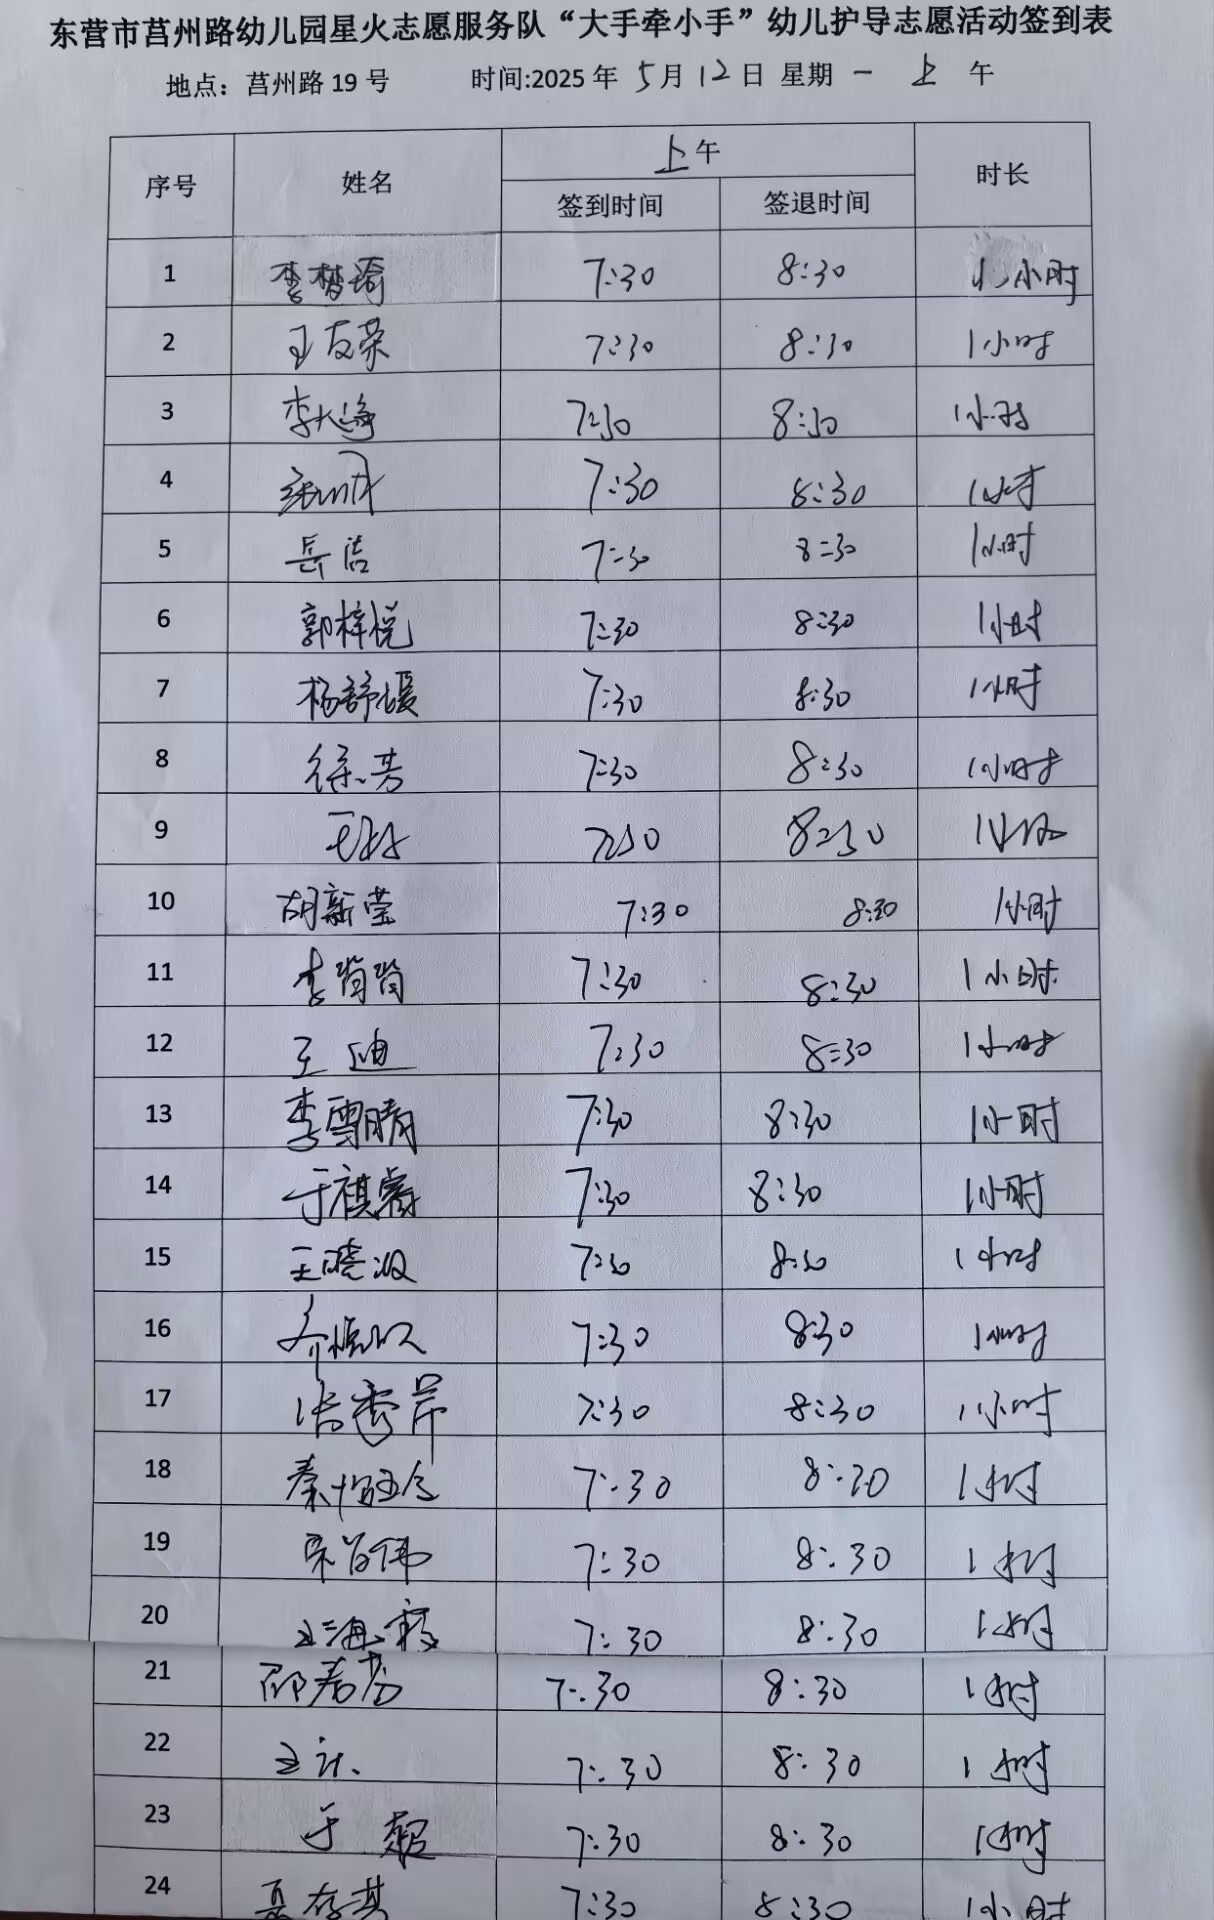 东营市莒州路幼儿园星火志愿服务队“大手牵小手”幼儿护导志愿活动签到表
地点：莒州路 19 号 时间:2025 年 5 月 12 日 星期 一 上 午
序号 姓名 上午 时长
签到时间 签退时间
1 李梦瑜 7:30 8:30 1小时
2 王友荣 7:30 8:30 1小时
3 李大海 7:30 8:30 1小时
4 7:30 8:30 1小时
5 岳洁 7:30 8:30 1小时
6 郭梓悦 7:30 8:30 1小时
7 杨舒媛 7:30 8:30 1小时
8 徐芳 7:30 8:30 1小时
9 7:30 8:30 1小时
10 胡新莹 7:30 8:30 1小时
11 李肖肖 7:30 8:30 1小时
12 王迪 7:30 8:30 1小时
13 李雪晴 7:30 8:30 1小时
14 于祺睿 7:30 8:30 1小时
15 王晓波 7:30 8:30 1小时
16 7:30 8:30 1小时
17 张秀芹 7:30 8:30 1小时
18 秦 7:30 8:30 1小时
19 7:30 8:30 1小时
20 王海 7:30 8:30 1小时
21 邵春 7:30 8:30 1小时
22 7:30 8:30 1小时
23 于超 7:30 8:30 1小时
24 聂存淇 7:30 8:30 1小时